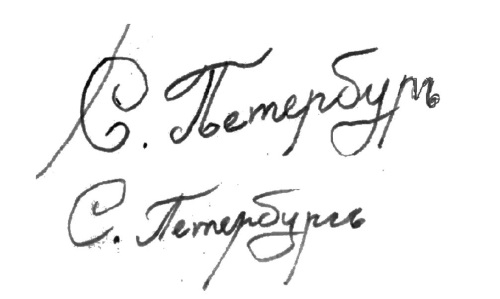 С. Петербургъ
С. Петербургъ